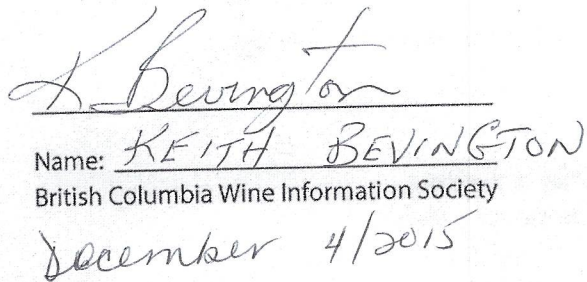 K Bevington
Name: KEITH BEVINGTON
British Columbia Wine Information Society
December 4/2015